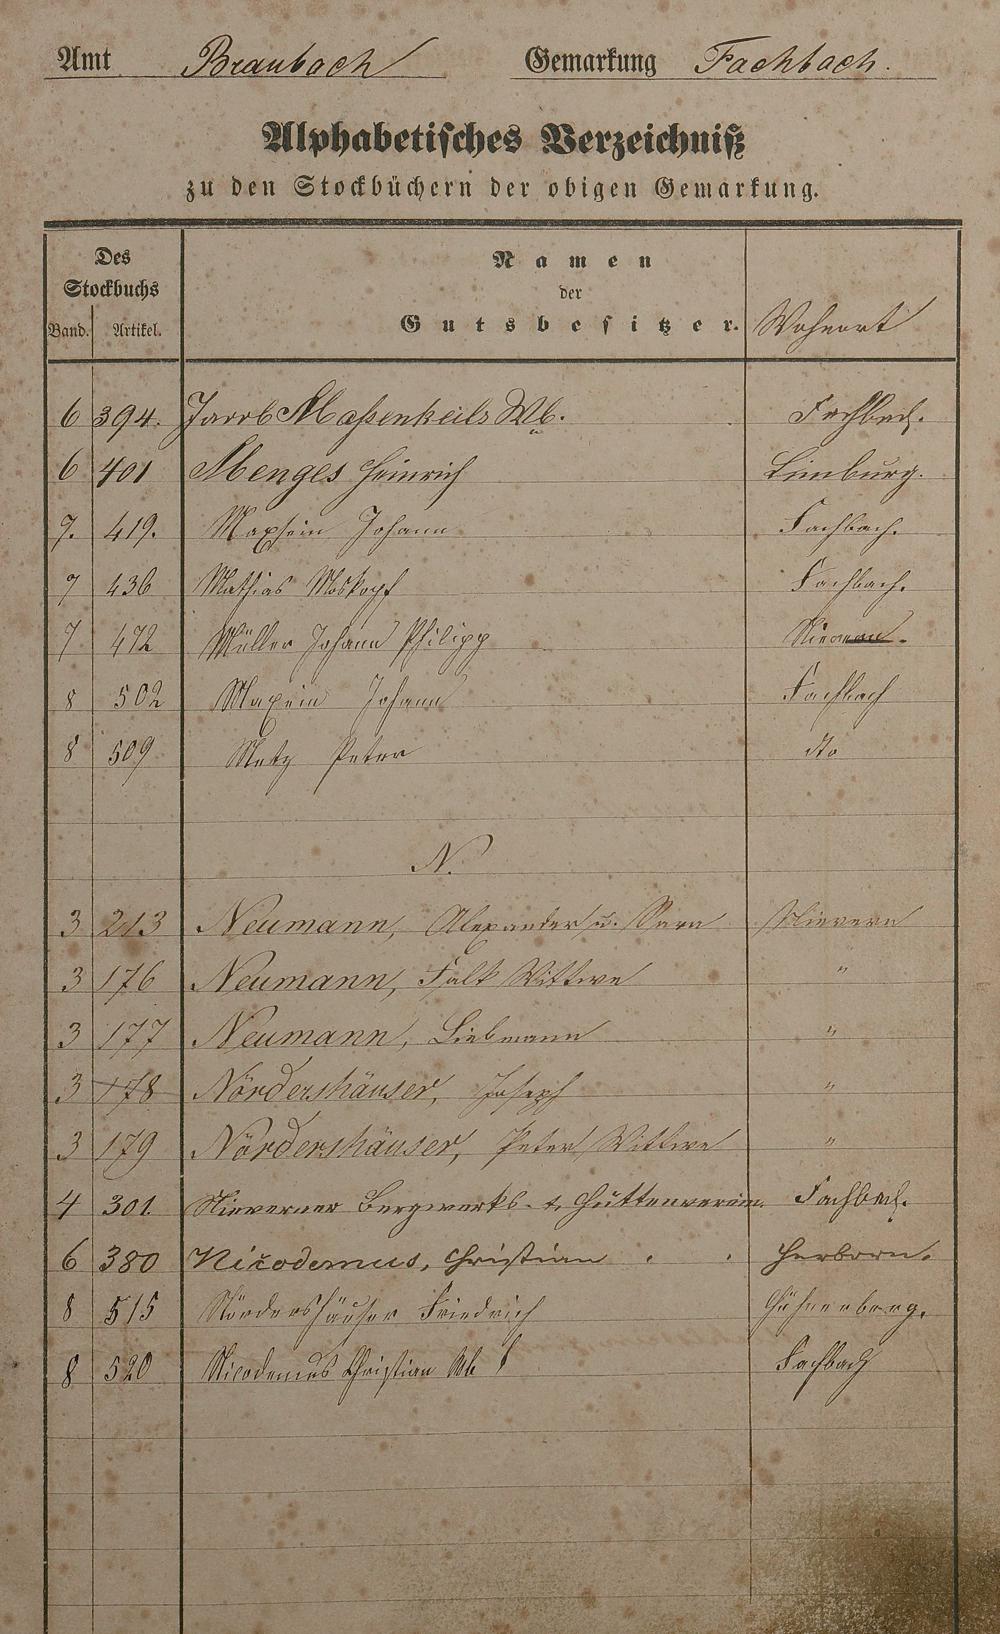 Amt Braubach Gemarkung Fachbach.
Alphabetisches Verzeichniß
zu den Stockbüchern der obigen Gemarkung.
Des Stockbuchs
Namen
der
Gutsbesitzer.
Band. Artikel.
Wohnort
6 394. Jacob Massenkeils Wb. Fachbach.
6 401 Menges Heinrich Limburg.
7. 419. Maxsein Johann Fachbach.
7 436 Mathias Moskopf Fachbach.
7 472 Müller Johann Philipp
8 502 Maxein Johann Fachbach
8 509 Metz Peter dto
N.
3 213 Neumann, Alexander u. Sara Nievern
3 176 Neumann, Falk Wittwe "
3 177 Neumann, Liebmann "
3 178 Nördershäuser, Joseph "
3 179 Nördershäuser, Peter Wittwe "
4 301. Nieverner Bergwerks- & Hüttenverein. Fachbach.
6 380 Nicodemus, Christian Herborn.
8 515 Nördershäuser Friedrich
8 520 Nicodemus Christian Wb Fachbach